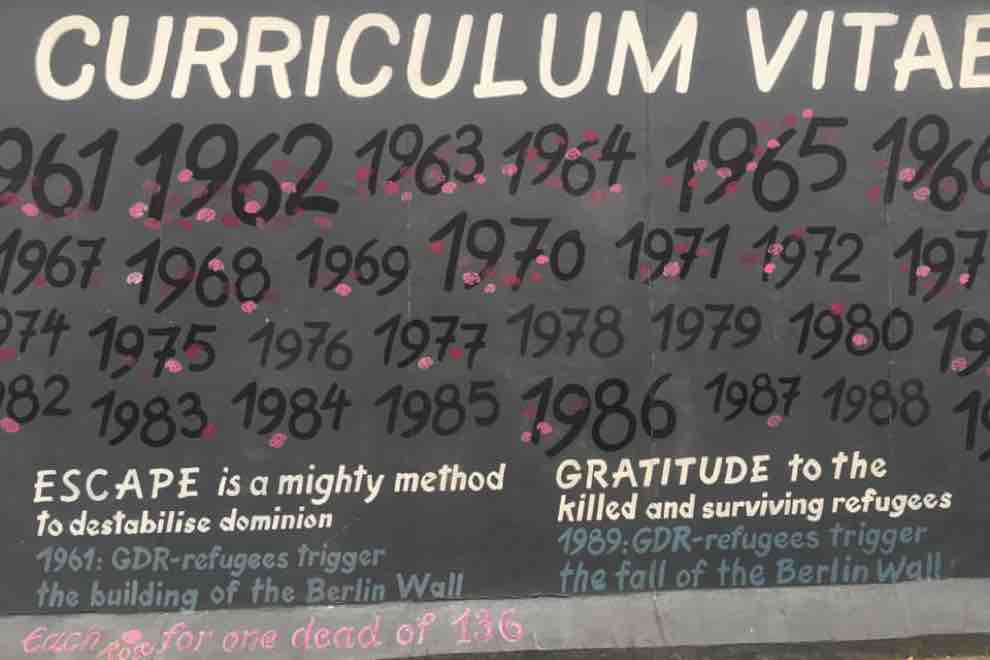 CURRICULUM VITAE
961 1962 1963 1964 1965 1966
1967 1968 1969 1970 1971 1972 197
974 1975 1976 1977 1978 1979 1980 19
982 1983 1984 1985 1986 1987 1988 19
ESCAPE is a mighty method
to destabilise dominion
1961: GDR-refugees trigger
the building of the Berlin Wall
GRATITUDE to the
killed and surviving refugees
1989: GDR-refugees trigger
the fall of the Berlin Wall
Each rose for one dead of 136